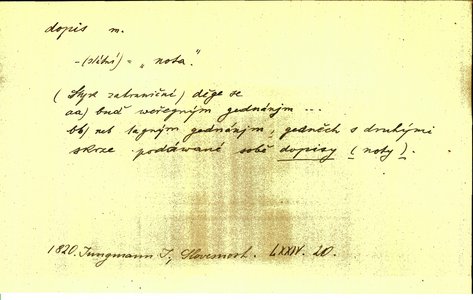 dopis m.
- (státní) = „nota".
( Styk zahraniční) děge se
aa) buď weřegným gednánjm ...
bb) neb tagným gednánjm, gedněch s druhými
skrze podáwané sobě dopisy (noty).
1820. Jungmann J., Slovesnost. LXXIV. 20.